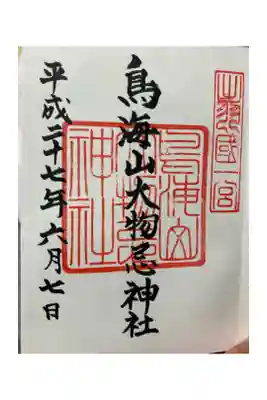 出羽國一宮
鳥海山大物忌神社
平成二十七年六月七日